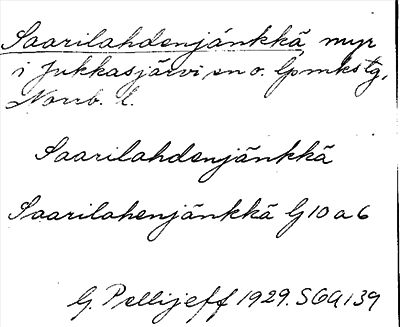 Saarilahdenjänkkä, myr
i Jukkasjärvi sn o. lpmks tg,
Norrb. l.
Saarilahdenjänkkä
Saarilahenjänkkä G 10 a 6
G. Pellijeff 1929. SGA 139